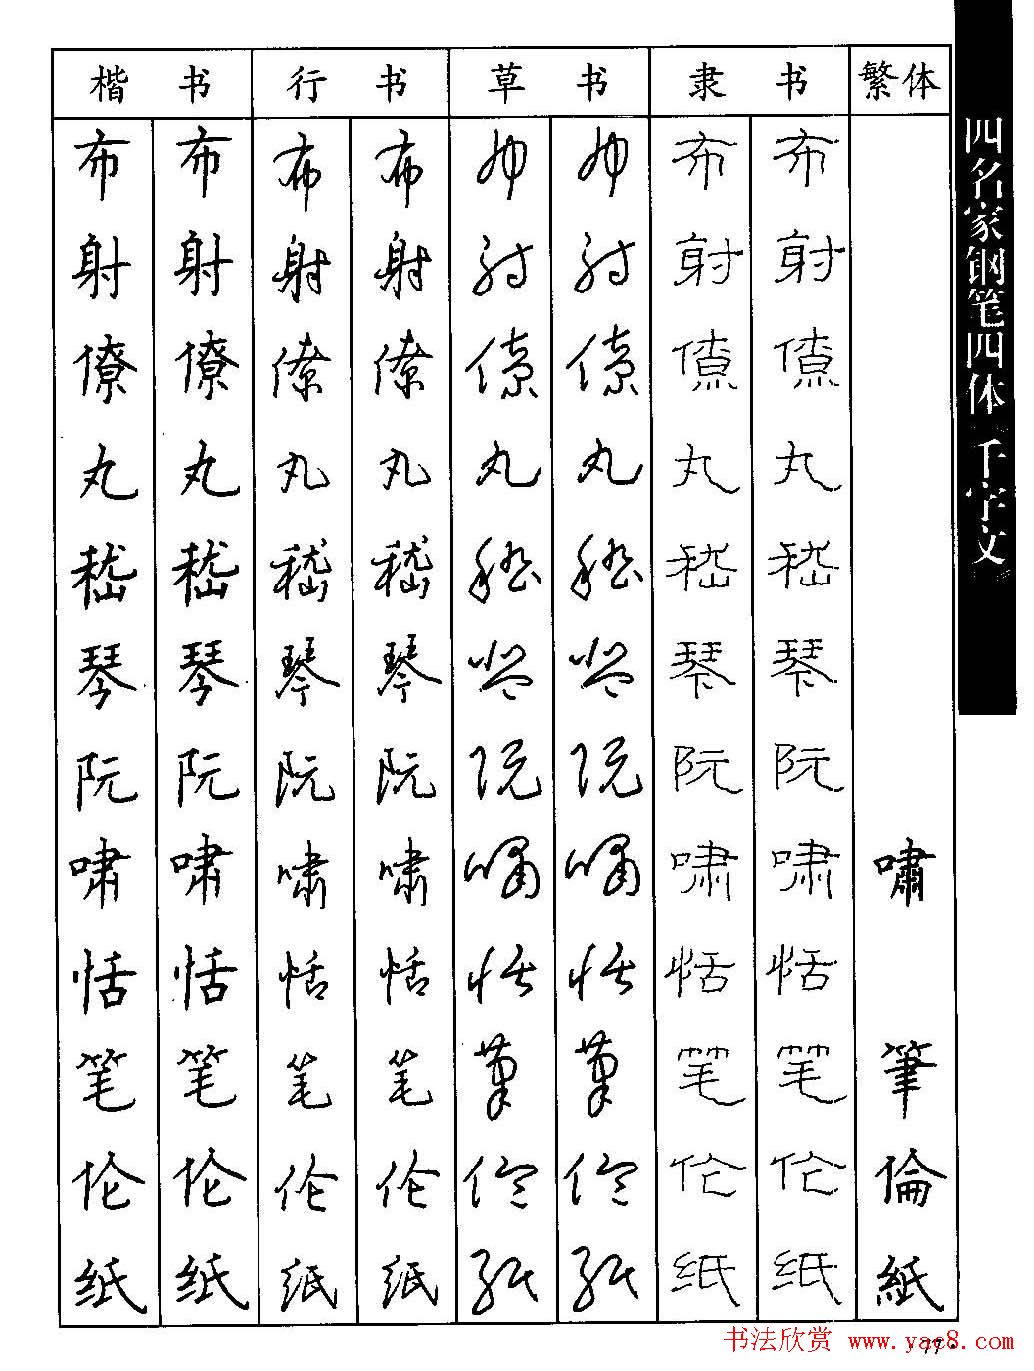 楷 书 行 书 草 书 隶 书 繁体
布 布 布 布 布 布 布 布
射 射 射 射 射 射 射 射
僚 僚 僚 僚 僚 僚 僚 僚
丸 丸 丸 丸 丸 丸 丸 丸
嵇 嵇 嵇 嵇 嵇 嵇 嵇 嵇
琴 琴 琴 琴 琴 琴 琴 琴
阮 阮 阮 阮 阮 阮 阮 阮
啸 啸 啸 啸 啸 啸 啸 啸 嘯
恬 恬 恬 恬 恬 恬 恬 恬
笔 笔 笔 笔 笔 笔 笔 笔 筆
伦 伦 伦 伦 伦 伦 伦 伦 倫
纸 纸 纸 纸 纸 纸 纸 纸 紙
四名家钢笔四体千字文
书法欣赏 www.yac8.com